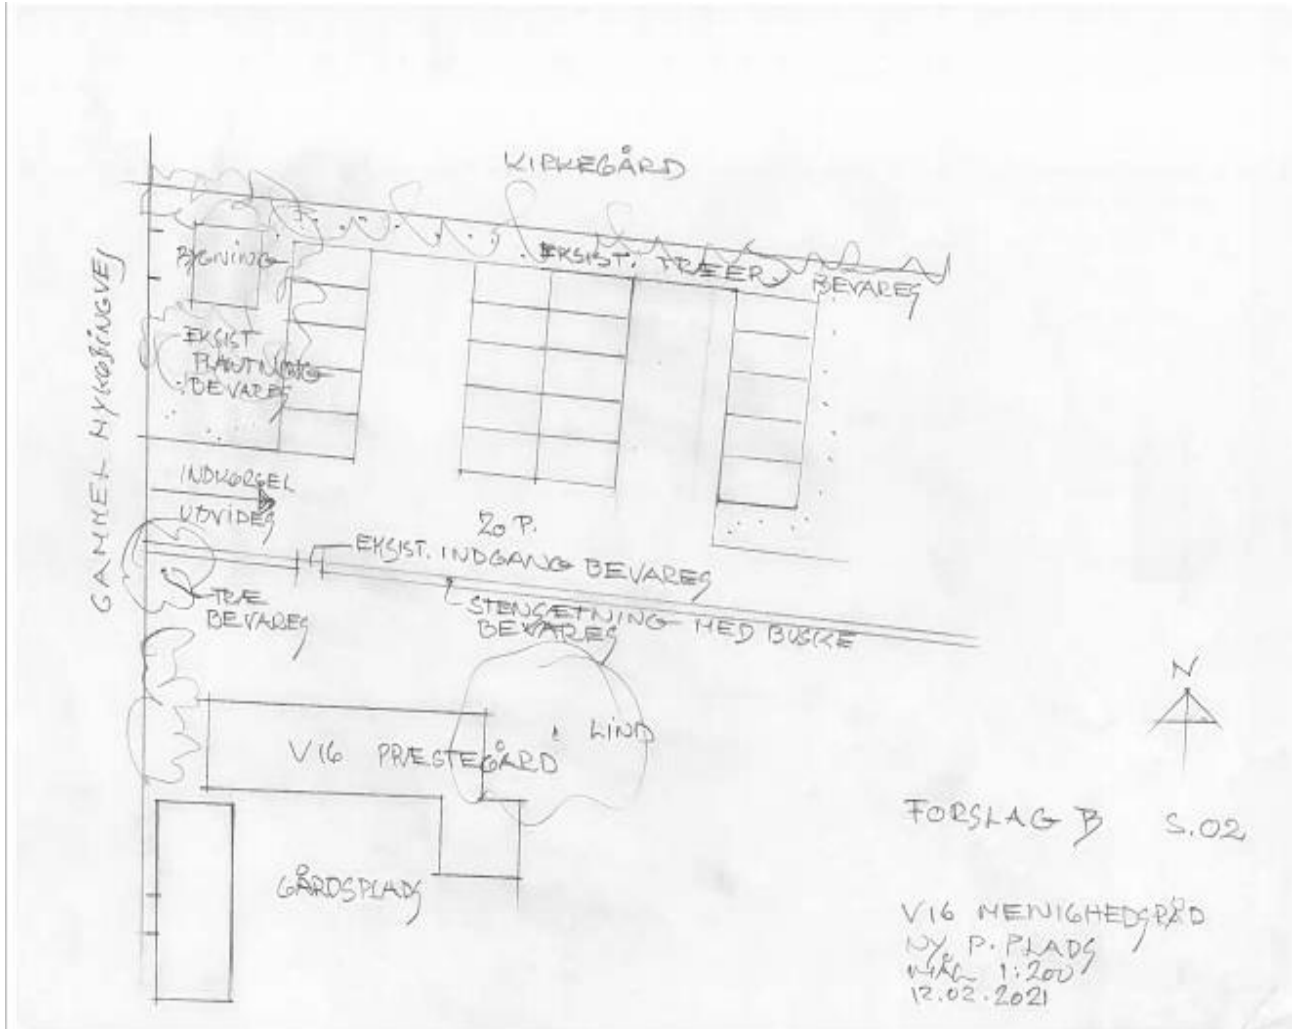 KIRKEGÅRD
EKSIST. TRÆER
BEVARES
BYGNING
EKSIST
PLANTNING
BEVARES
GAMMEL NYKØBINGVEJ
INDKØRSEL
UDVIDES
20 P.
EKSIST. INDGANG BEVARES
TRÆ
BEVARES
STENSÆTNING MED BUSKE
BEVARES
LIND
V16 PRÆSTEGÅRD
GÅRDSPLADS
N
FORSLAG B S.02
V16 MENIGHEDSRÅD
NY P. PLADS
MÅL 1:200
12.02.2021